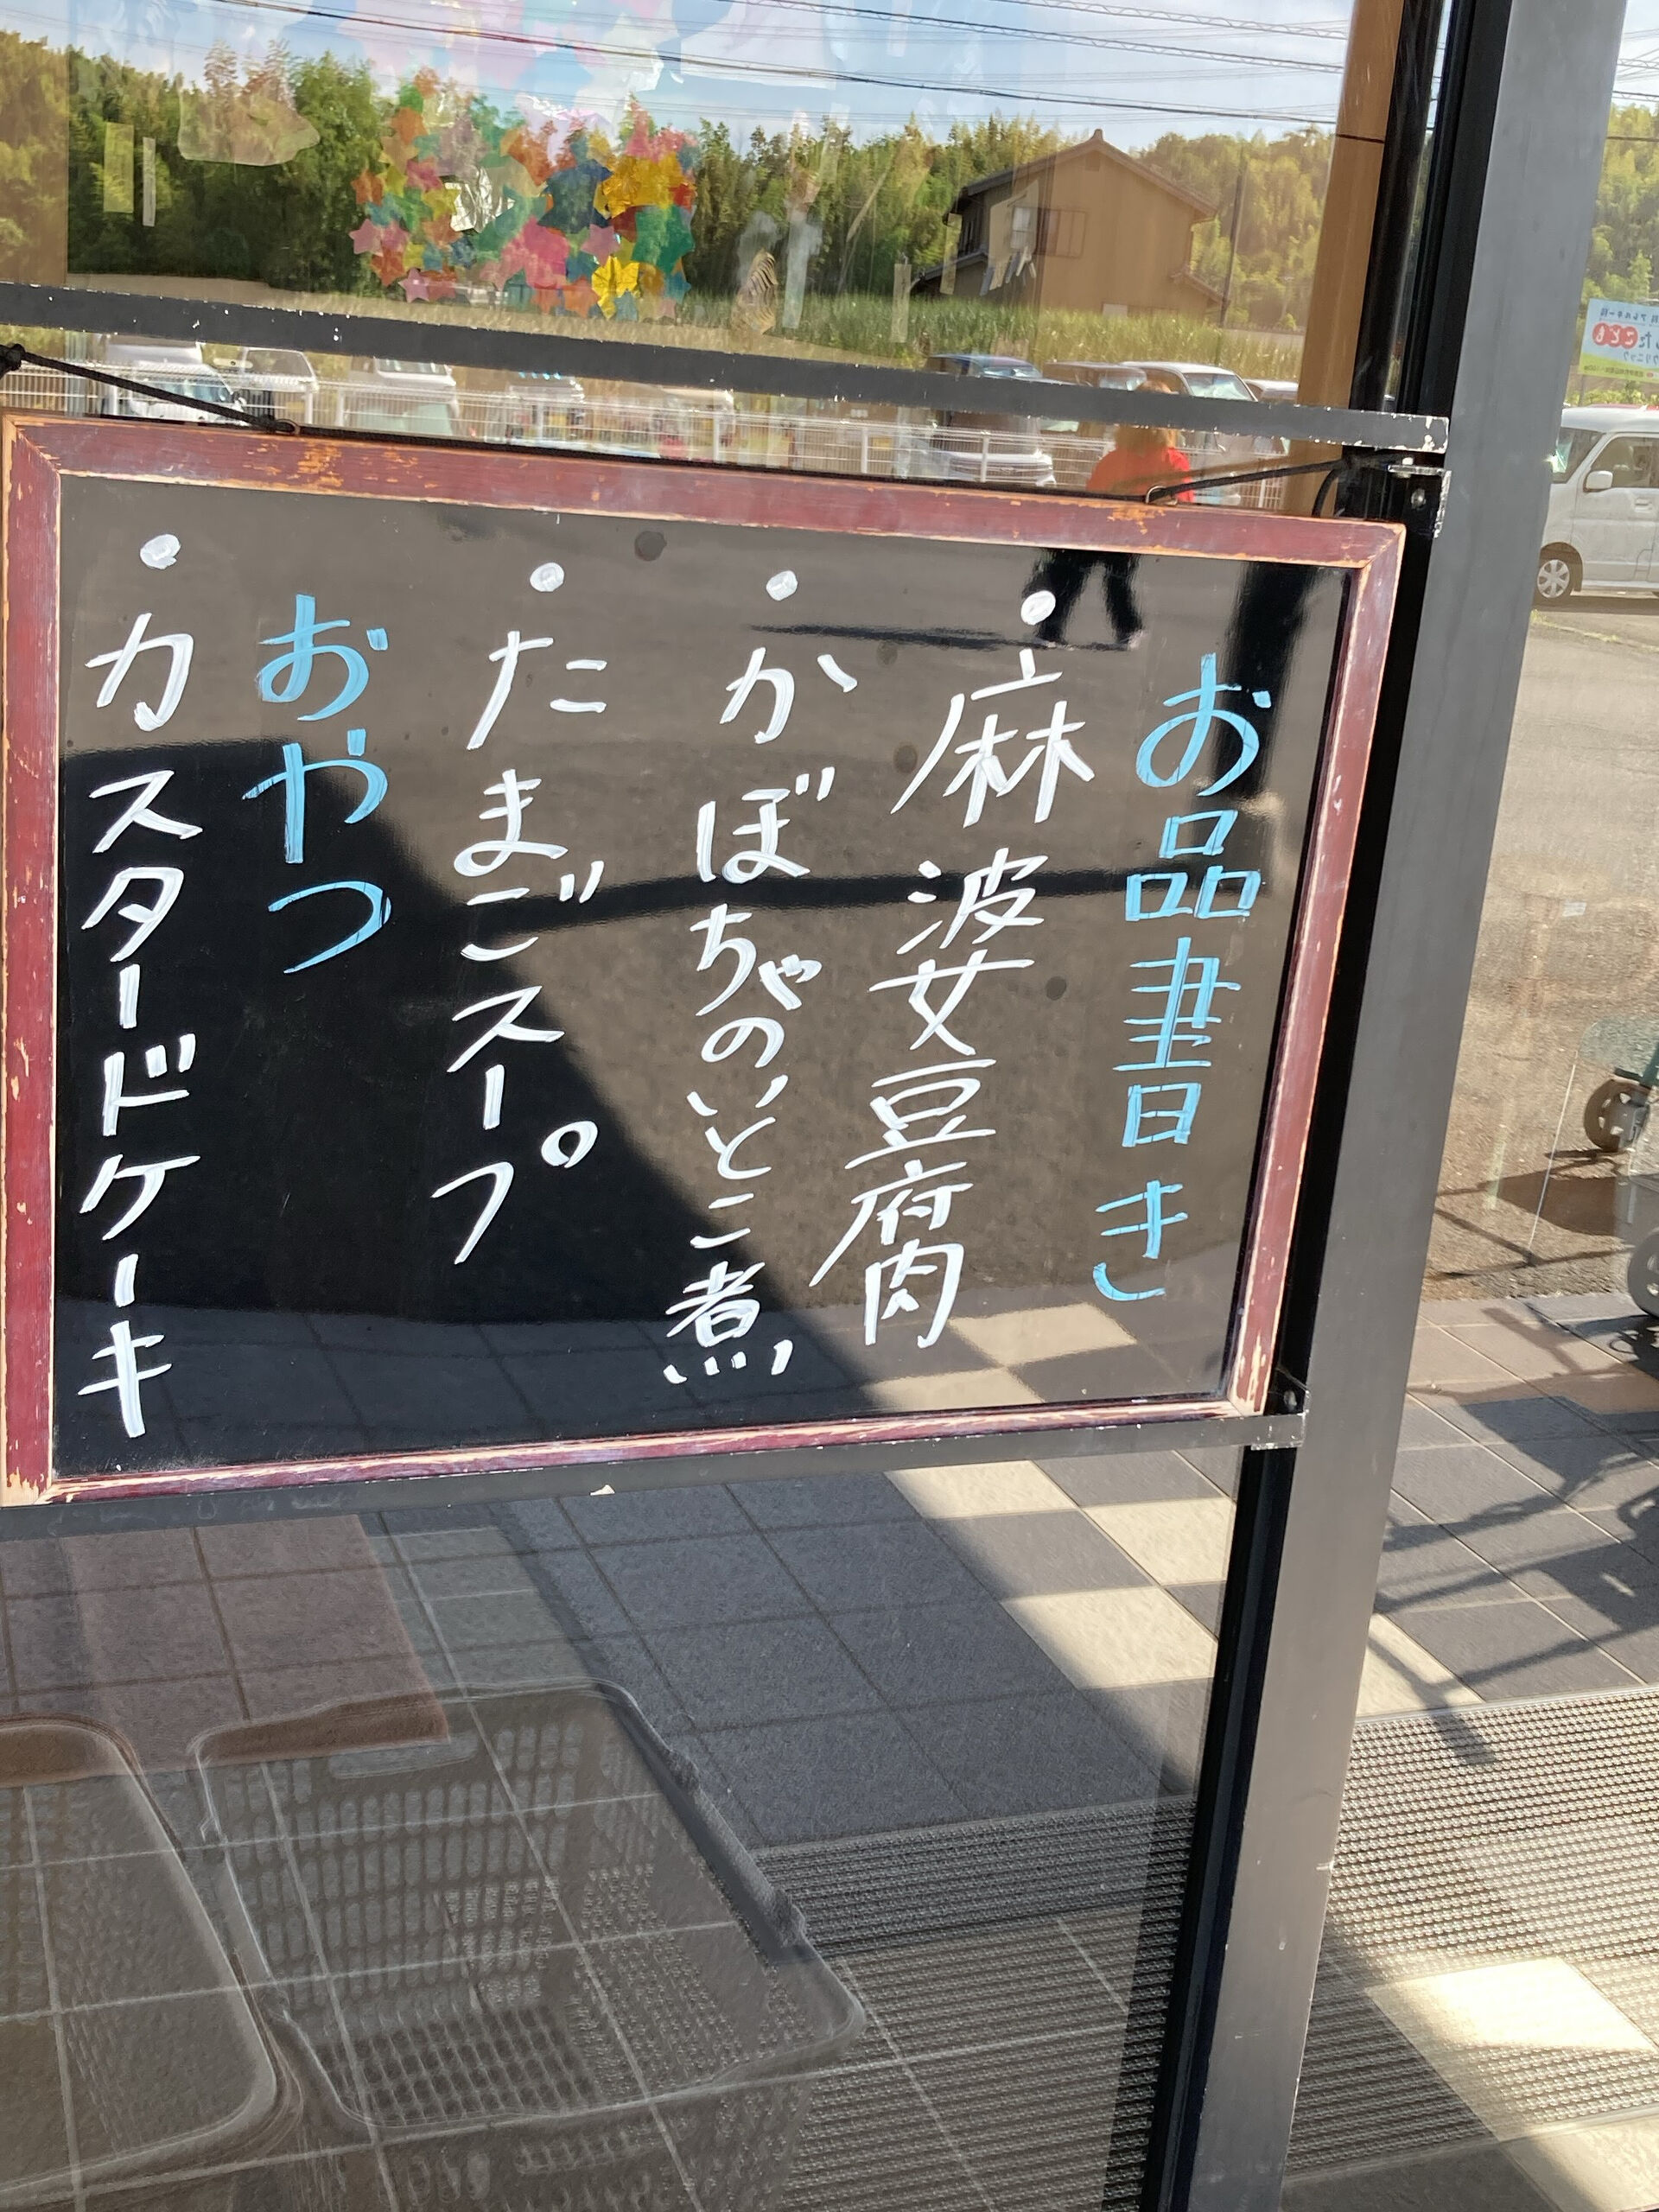 お品書き
・麻婆豆腐
・かぼちゃのいとこ煮
・たまごスープ
おやつ
・カスタードケーキ